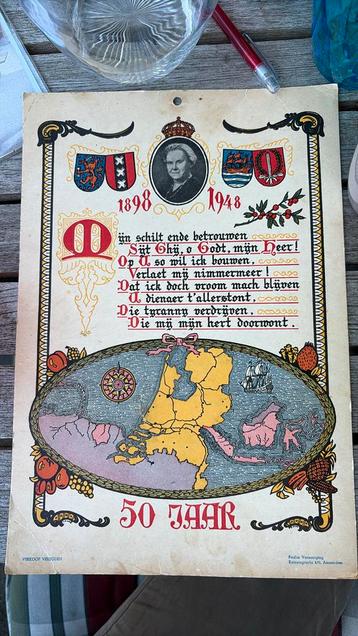 1898 1948
Mijn schilt ende betrouwen
Sijt Ghij, o Godt, mijn Heer!
Op U so wil ick bouwen,
Verlaet mij nimmermeer!
Dat ick doch vroom mach blijven
U dienaer t'allerstont,
Die tyranny verdrijven,
Die mij mijn hert doorwont.
50 JAAR
VERKOOP VERBODEN
Keizersgracht Amsterdam